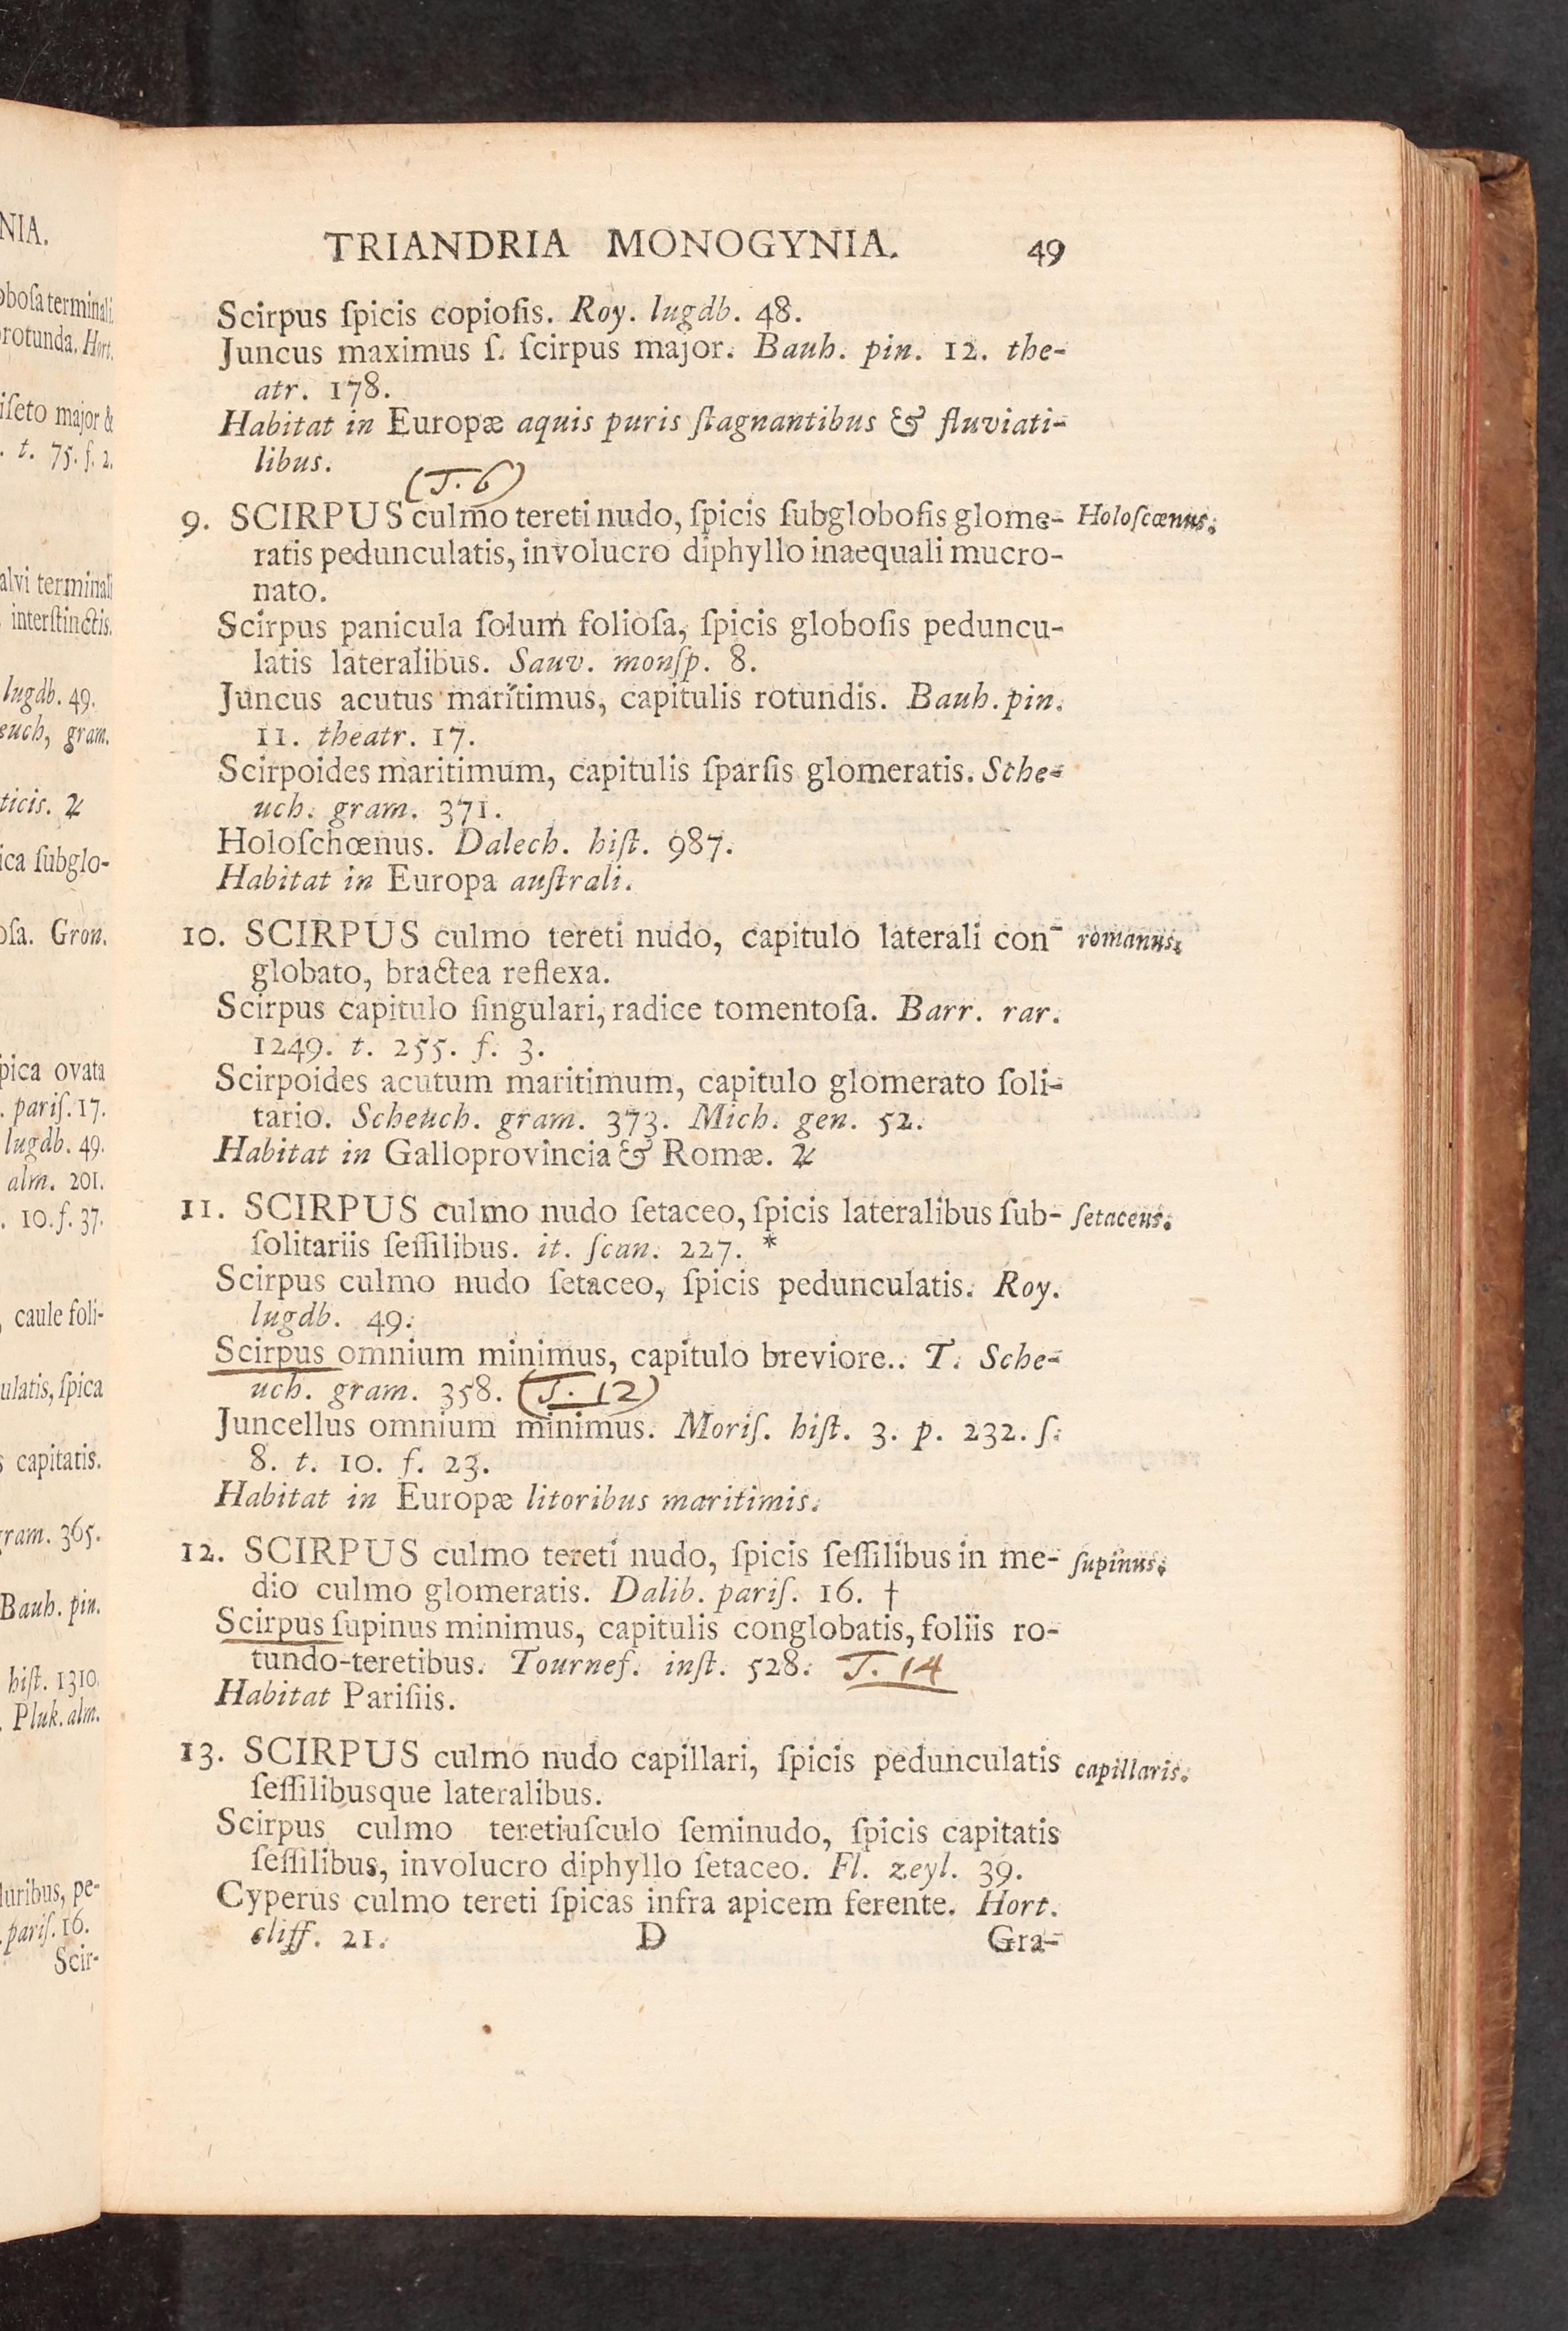 NIA.
oboſa terminali
rotunda. Hort.
iſeto major &
. t. 75. ſ. 2.
alvi terminali
interſtinctis.
lugdb. 49.
euch, gram.
ticis. ♃
ica ſubglo-
oſa. Gron.
pica ovata
. pariſ. 17.
lugdb. 49.
alm. 201.
. 10. f. 37.
, caule foli-
ulatis, ſpica
s capitatis.
gram. 365.
Bauh. pin.
hiſt. 1310.
. Pluk. alm.
luribus, pe-
. pariſ. 16.
Scir-
TRIANDRIA MONOGYNIA. 49
Scirpus ſpicis copioſis. Roy. lugdb. 48.
Juncus maximus ſ. ſcirpus major. Bauh. pin. 12. the-
atr. 178.
Habitat in Europæ aquis puris ſtagnantibus & fluviati-
libus.
(T. 6)
9. SCIRPUS culmo tereti nudo, ſpicis ſubgloboſis glome- Holoſcœnus.
ratis pedunculatis, involucro diphyllo inaequali mucro-
nato.
Scirpus panicula ſolum folioſa, ſpicis globoſis peduncu-
latis lateralibus. Sauv. monſp. 8.
Juncus acutus maritimus, capitulis rotundis. Bauh. pin.
11. theatr. 17.
Scirpoides maritimum, capitulis ſparſis glomeratis. Sche-
uch. gram. 371.
Holoſchœnus. Dalech. hiſt. 987.
Habitat in Europa auſtrali.
10. SCIRPUS culmo tereti nudo, capitulo laterali con- romanus.
globato, bractea reflexa.
Scirpus capitulo ſingulari, radice tomentoſa. Barr. rar.
1249. t. 255. f. 3.
Scirpoides acutum maritimum, capitulo glomerato ſoli-
tario. Scheuch. gram. 373. Mich. gen. 52.
Habitat in Galloprovincia & Romæ. ♃
11. SCIRPUS culmo nudo ſetaceo, ſpicis lateralibus ſub- ſetaceus.
ſolitariis ſeſſilibus. it. ſcan. 227. *
Scirpus culmo nudo ſetaceo, ſpicis pedunculatis. Roy.
lugdb. 49.
Scirpus omnium minimus, capitulo breviore.. T. Sche-
uch. gram. 358. (T. 12)
Juncellus omnium minimus. Moriſ. hiſt. 3. p. 232. ſ.
8. t. 10. f. 23.
Habitat in Europæ litoribus maritimis.
12. SCIRPUS culmo tereti nudo, ſpicis ſeſſilibus in me- ſupinus.
dio culmo glomeratis. Dalib. pariſ. 16. †
Scirpus ſupinus minimus, capitulis conglobatis, foliis ro-
tundo-teretibus. Tournef. inſt. 528. T. 14
Habitat Pariſiis.
13. SCIRPUS culmo nudo capillari, ſpicis pedunculatis capillaris.
ſeſſilibusque lateralibus.
Scirpus culmo teretiuſculo ſeminudo, ſpicis capitatis
ſeſſilibus, involucro diphyllo ſetaceo. Fl. zeyl. 39.
Cyperus culmo tereti ſpicas infra apicem ferente. Hort.
cliff. 21. D Gra-